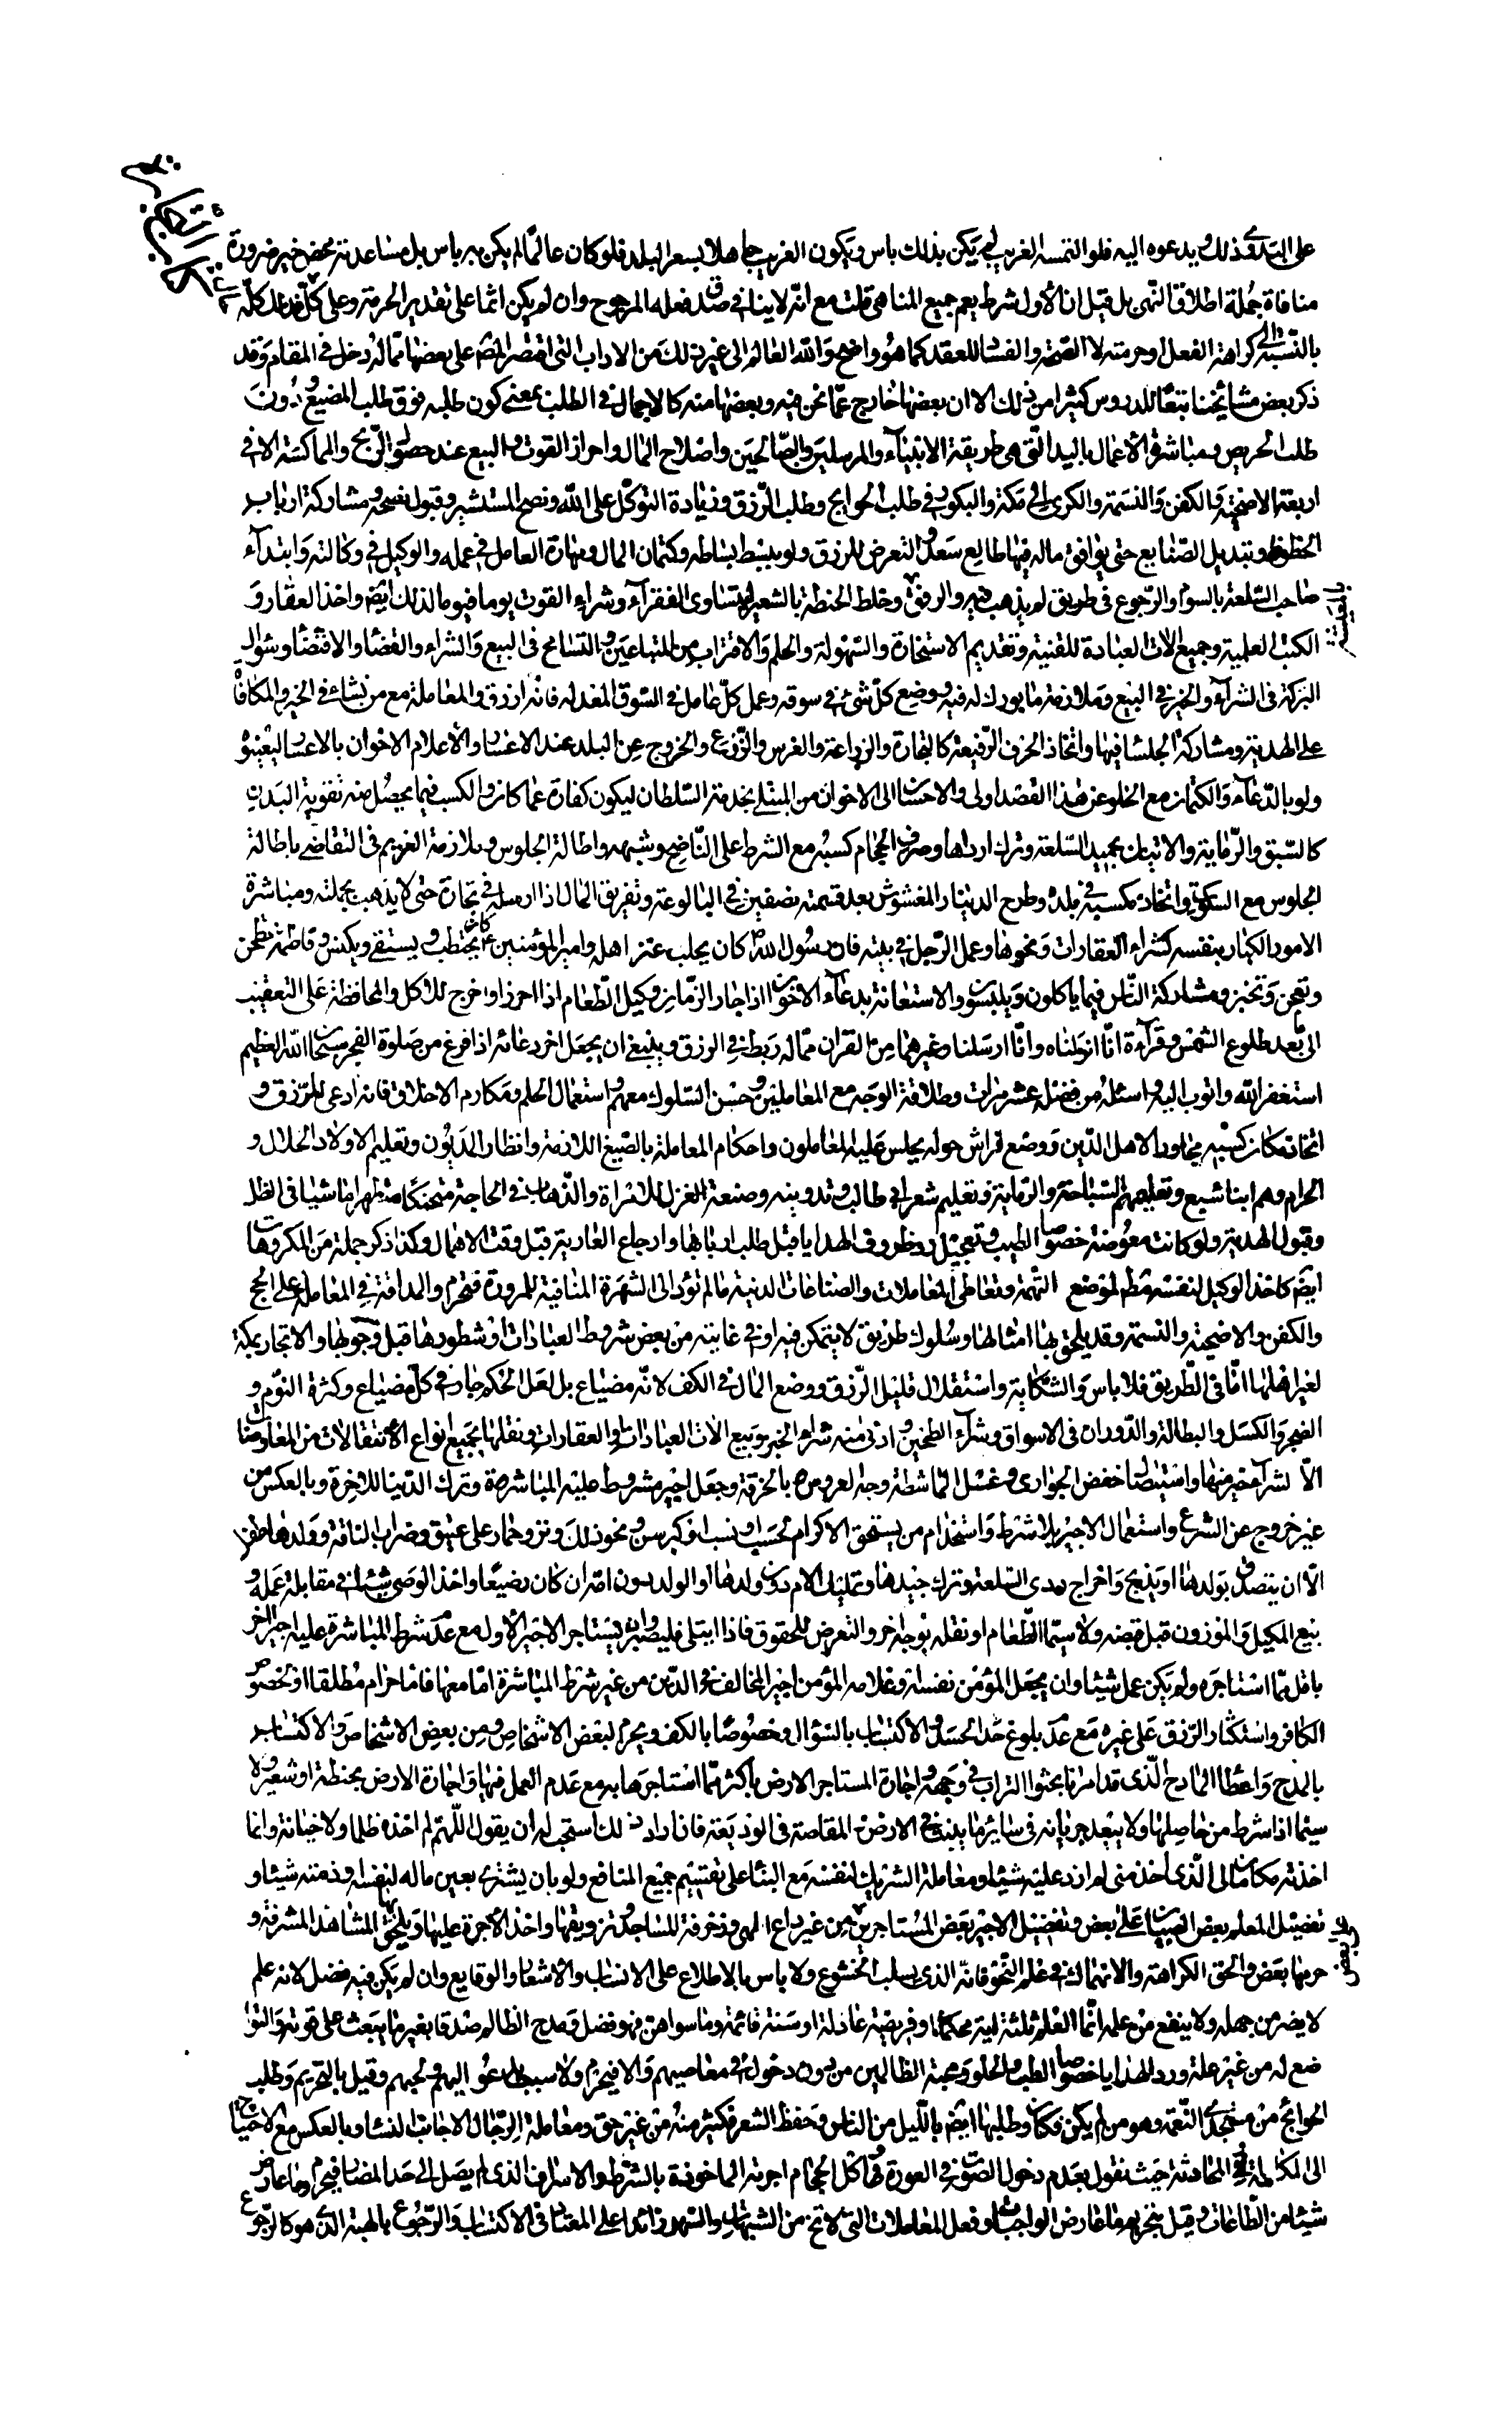 كتاب المتاجر
على البادي في ذلك ويدعوه اليه فلو التمسه الغريب لم يكن بذلك باس ويكون الغريب جاهلا بسعر البلد فلو كان عالما لم يكن به باس بل مساعدته محض خير ضرورة
منافاة جملة اطلاق النهى بل قيل ان الأول شرط يعم جميع المناهى قلت مع انه لا ينافى صدق فعله المرجوح وان لم يكن اثما على تقدير الحرمة وعلى كل فذلك كله
بالنسبة الى كراهة الفعل وحرمته لا الصحة والفساد للعقد كما هو واضح والله العالم الى غير ذلك من الاداب التى اقتصر المصنف على بعضها مما له دخل في المقام وقد
ذكر بعض مشايخنا تبعا للدروس كثيرا من ذلك الا ان بعضها خارج عما نحن فيه وبعضها منه كالاجمال في الطلب بمعنى كون طلبه فوق طلب المضيع ودون
طلب الحريص ومباشرة الأعمال باليد التى هي طريقة الانبياء والمرسلين والصالحين واصلاح المال واحراز القوت والبيع عند حصول الربح والمماكسة الا في
اربعة الاضحية والكفن والنسمة والكرى الى مكة والبكور في طلب الحوايج وطلب الرزق وزيادة التوكل على الله ونصح المستشير وقبول نصحه ومشاركة ارباب
الحظوظ وتبديل الصنايع حتى يوافق ماله فيها طالع سعد والتعرض للرزق ولو ببسط بساطه وكتمان المال ومهارة العامل في عمله والوكيل في وكالته وابتداء
صاحب السلعة بالسوم والرجوع في طريق لم يذهب فيه والرفق وخلط الحنطة بالشعير لتساوى الفقراء وشراء القوت يوما فيوما لذلك ايضا واخذ العقار و
الكتب العلمية وجميع الات العبادة للقنية وتقديم الاستخارة والسهولة والحلم والاقتراب من المتبايعين والتسامح في البيع والشراء والقضاء والاقتضاء وسؤال
البركة في الشراء والخير في البيع وملازمة ما بورك له فيه ووضع كل شئ في سوقه وعمل كل عامل في السوق المعد له فانه ارزق والمعاملة مع من نشأ في الخير والمكافاة
على الهدية ومشاركة الجلساء فيها واتخاذ الحرف الرفيعة كالتجارة والزراعة والغرس والزرع والخروج عن البلد عند الاعسار والأعلام الاخوان بالاعسار ليعينوه
ولو بالدعاء والكتمان مع الخلو عن هذا القصد اولى والاحسان الى الاخوان من المبتلى بخدمة السلطان ليكون كفارة عما كان والكسب فيما يحصل منه تقوية البدن
كالسبق والرماية والاتيان بجيد السلعة وترك ارداها وصرف الحجام كسبه مع الشرط على الناضح وشبهه واطالة الجلوس وملازمة الغريم في التقاضى باطالة
الجلوس مع السكوت واتخاذ مكسبه في بلده وطرح الدينار المغشوش بعد قسمته نصفين في البالوعة وتفريق المال اذا ارسله في تجارة حتى لا يذهب بجملته ومباشرة
الامور الكبار بنفسه كشراء العقارات ونحوها وعمل الرجل في بيته فان رسول الله ص كان يحلب عنز اهله وامير المؤمنين ع كان يحتطب ويستقى ويكنس وفاطمة تطحن
وتعجن وتخبز ومشاركة الناس فيما ياكلون ويلبسون والاستعانة بدعاء الاخوان اذا جار الزمان وكيل الطعام اذا احرز او اخرج للاكل والمحافظة على التعقيب
الى بعد طلوع الشمس وقراءة انا انزلناه وانا ارسلنا وغيرهما من القران مما له ربط في الرزق وينبغى ان يجعل اخر دعائه اذا فرغ من صلوة الفجر سبحان الله العظيم
استغفر الله واتوب اليه واسئله من فضله عشر مرات وطلاقة الوجه مع المعاملين وحسن السلوك معهم واستعمال الحلم ومكارم الاخلاق فانه ادعى للرزق و
اتخاذ مكان كسبه مجاورا لاهل الدين ووضع فراش حوله يجلس عليه المعاملون واحكام المعاملة بالصيغ اللازمة وانظار المديون وتعليم الاولاد الحلال و
الحرام وهم ابناء سبع وتعليمهم السباحة والرماية وتعليم شعر ابي طالب وتدوينه وصنعة الغزل للامراة والذهاب في الحاجة متحنكا متطهرا ماشيا في الظل
وقبول الهدية ولو كانت معوضة خصوصا الطيب وتعجيل رد ظروف الهدايا قبل طلب اربابها وارجاع العارية قبل وقت الاهمال وكذا ذكر جملة من المكروهات
ايضا كاخذ الوكيل لنفسه لموضع التهمة وتعاطى المعاملات والصناعات الدنية ما لم تؤد الى الشهرة المنافية للمروة فتحرم والمداقة في المعاملة على الحج
والكفن والاضحية والنسمة وقد يلحق بها امثالها وسلوك طريق لا يتمكن فيه او في غايته من بعض شروط العبادات او شطورها قبل وجوبها والاتجار بمكة
لغير اهلها اما في الطريق فلا باس والشكاية واستقلال قليل الرزق ووضع المال في الكف لانه مضياع بل لعل الحكم جار في كل مضياع وكثرة النوم و
الضجر والكسل والبطالة والدوران في الاسواق وشراء الطحين وادنى منه شراء الخبز وبيع الات العبادات والعقارات ونقلها بجميع انواع الأنتقالات من المعاوضات
الا لشراء خير منها واستيصال خفض الجوارى وغسل الماشطة وجه العروس بالخرقة وجعل اجير مشروط عليه المباشرة وترك الدنيا للاخرة وبالعكس من
غير خروج عن الشرع واستعمال الاجير بلا شرط واستخدام من يستحق الاكرام لحسب او نسب او كبر سن ونحو ذلك ونزو حمار على عتيق وضراب الناقة وولدها طفل
الا ان يتصدق بولدها او يذبح واخراج ردى السلعة وترك جيدها وتمليك الام دون ولدها او الولد دون امه ان كان رضيعا واخذ الوصى شيئا في مقابلة عمله و
بيع المكيل والموزون قبل قبضه ولا سيما الطعام او نقله بوجه اخر والتعرض للحقوق فاذا ابتلى فليصبر وان يستاجر الاجير الأول مع عدم شرط المباشرة عليه اجيرا اخر
باقل مما استاجره ولم يكن عمل شيئا وان يجعل المؤمن نفسه او غلامه المؤمن اجيرا لمخالف في الدين من غير شرط المباشرة اما معها فاما حرام مطلقا او بخصوص
الكافر واستكثار الرزق على غيره مع عدم بلوغ حد الحسد والاكتساب بالسؤال وخصوصا بالكف ويحرم لبعض الاشخاص ومن بعض الاشخاص والاكتساب
بالمدح واعطاء المادح الذى قد امرنا بحثو التراب في وجهه واجارة المستاجر الارض باكثر مما استاجرها به مع عدم العمل فيها واجارة الارض بحنطة او شعير ولا
سيما اذا شرط من حاصلها ولا يبعد جريانه في ساير ما ينبت في الارض المقاصة في الوديعة فان اراد ذلك استحب له ان يقول اللهم لم اخذه ظلما ولا خيانة وانما
اخذته مكان مالى الذى اخذ منى لم ازد عليه شيئا ومعاملة الشريك لنفسه مع البناء على تقسيم جميع المنافع ولو بان يشترى بعين ماله لنفسه وذمته شيئا و
تفضيل المعلم بعض الصبيان على بعض وتفضيل الاجير بعض المستاجرين من غير داع الهى وزخرفة المساجد وتزويقها واخذ الأجرة عليها ويلحق بها المشاهد المشرفة و
حرمها بعض والحق الكراهة والانهماك في علم النحو فانه الذى يسلب الخشوع ولا باس بالاطلاع على الانساب والاشعار والوقايع وان لم يكن فيه فضل لانه علم
لا يضر من جهله ولا ينفع من علمه انما العلم ثلثة اية محكمة او فريضة عادلة او سنة قائمة وما سواهن فهو فضل ومدح الظالم صدقا بغير ما يبعث على قوته والتوا
ضع له من غير علة ورد الهدايا خصوصا الطيب والحلو ومحبة الظالمين من دون دخول في معاصيهم والا فيحرم ولا سبب يدعو اليهم ولحبهم وقيل بالتحريم وطلب
الحوائج من مستجد النعمة وهو من لم يكن فكان وطلبها ايضا بالليل من الناس وحفظ الشعر كثير منه من غير حق ومعاملة الرجال الاجانب النساء وبالعكس مع الاحتياج
الى المكالمة والمحادثة حيث نقول بعدم دخول الصوت في العورة واكل الحجام اجرته الماخوذة بالشرط والاسراف الذى لم يصل الى حد المضار فيحرم وما عارض
شيئا من الطاعات وقيل بتحريم ما عارض الواجبات وفعل المعاملات التى لا تخ من الشبهات والسهر زائدا على المعتاد في الاكتساب والرجوع بالهبة الذى هو كالرجوع